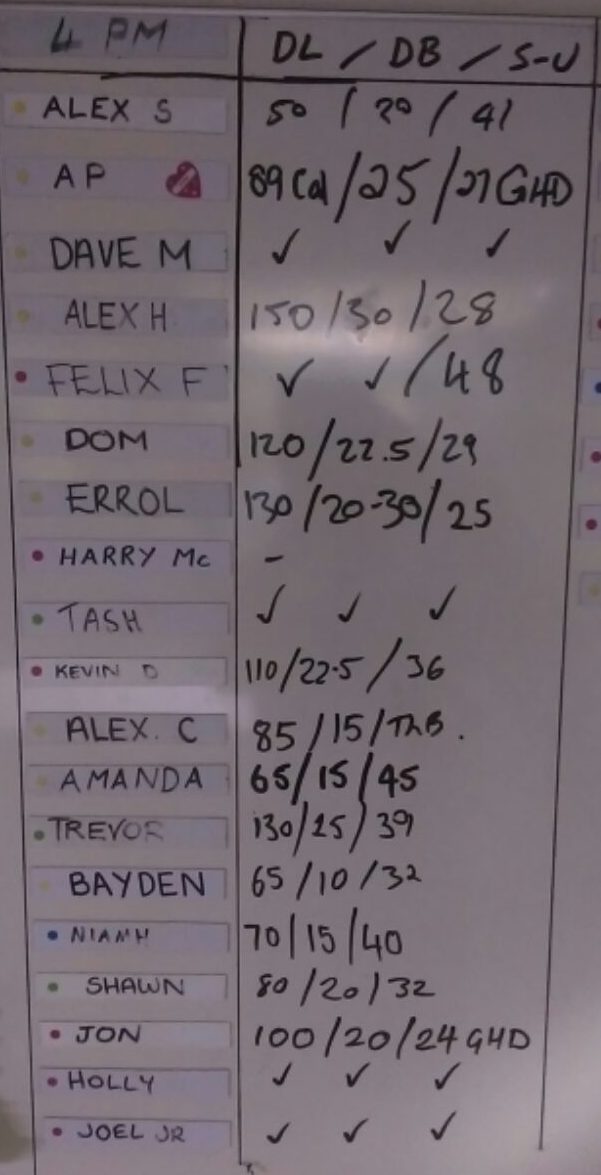 4 PM DL / DB / S-U
ALEX S 50 / 20 / 41
AP 89 Cal / 25 / 27 GHD
DAVE M ✓ ✓ ✓
ALEX H 150 / 30 / 28
FELIX F ✓ ✓ / 48
DOM 120 / 22.5 / 29
ERROL 130 / 20-30 / 25
HARRY Mc -
TASH ✓ ✓ ✓
KEVIN D 110 / 22.5 / 36
ALEX. C 85 / 15 /
AMANDA 65 / 15 / 45
TREVOR 130 / 25 / 39
BAYDEN 65 / 10 / 32
NIAMH 70 / 15 / 40
SHAWN 80 / 20 / 32
JON 100 / 20 / 24 GHD
HOLLY ✓ ✓ ✓
JOEL JR ✓ ✓ ✓